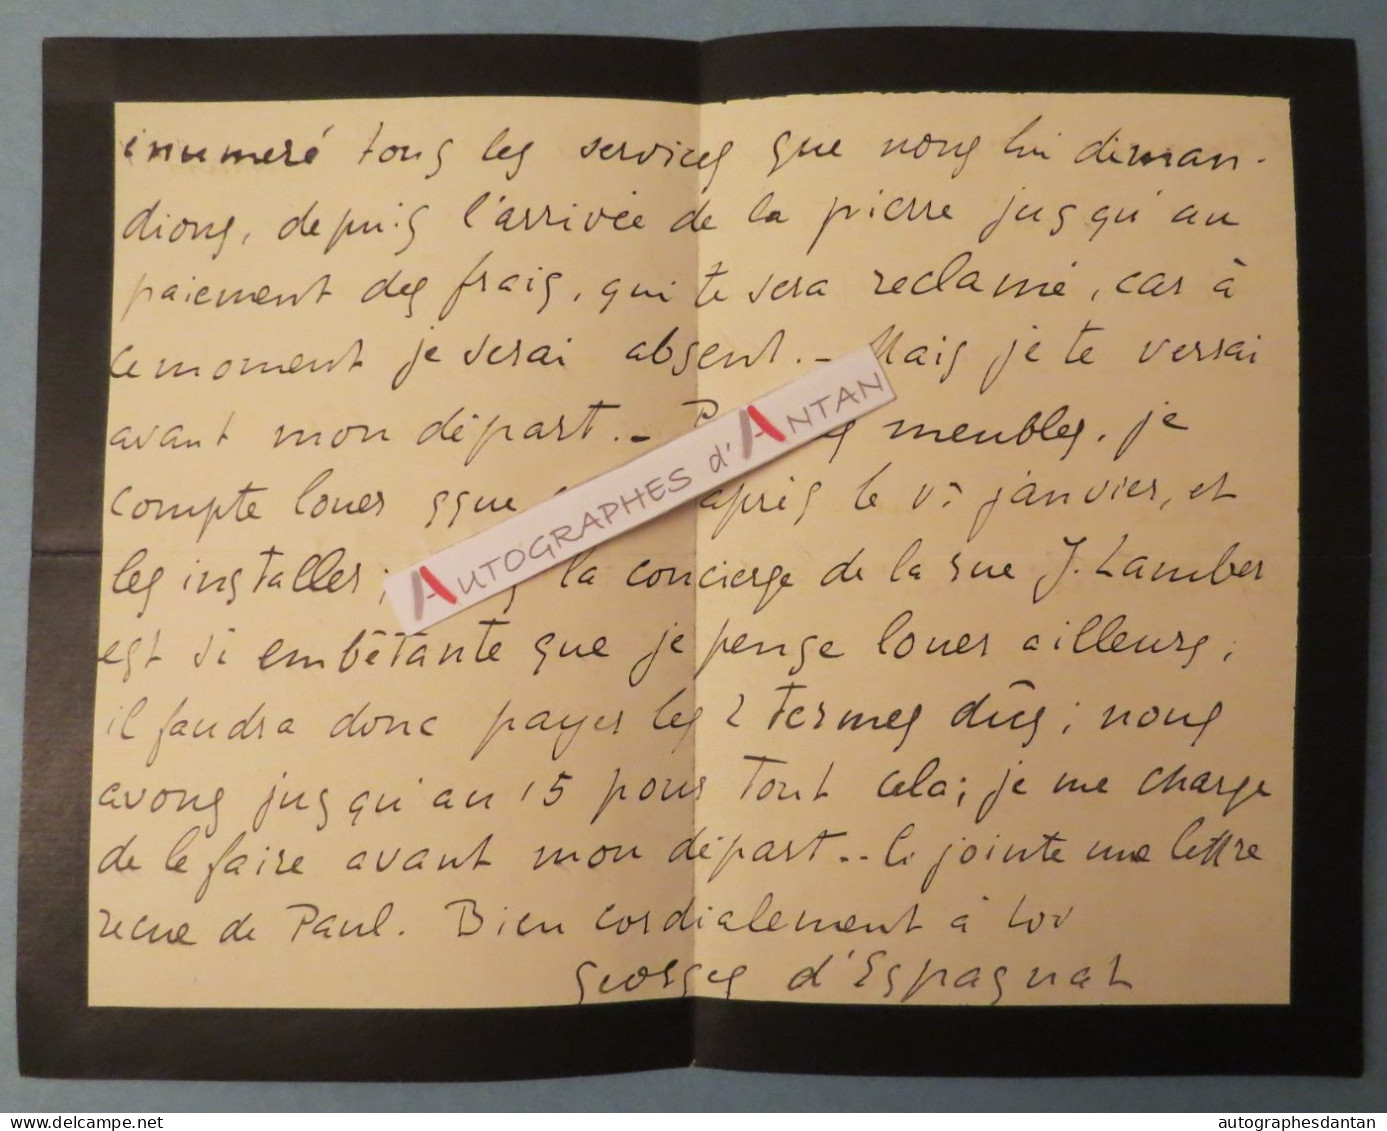 énuméré tous les services que nous lui deman-
dions, depuis l'arrivée de la pierre jusqu'au
paiement des frais, qui te sera réclamé, car à
ce moment je serai absent. - Mais je te verrai
avant mon départ. - meubles, je
compte louer qque après le 1er janvier, et
les installer ; la concierge de la rue J. Lamber
est si embêtante que je pense louer ailleurs ;
il faudra donc payer les 2 termes dûs ; nous
avons jusqu'au 15 pour tout cela ; je me charge
de le faire avant mon départ .. Ci jointe une lettre
reçue de Paul. Bien cordialement à toi
Georges d'Espagnat
AUTOGRAPHES d'ANTAN
autographesdantan
autographesdantan